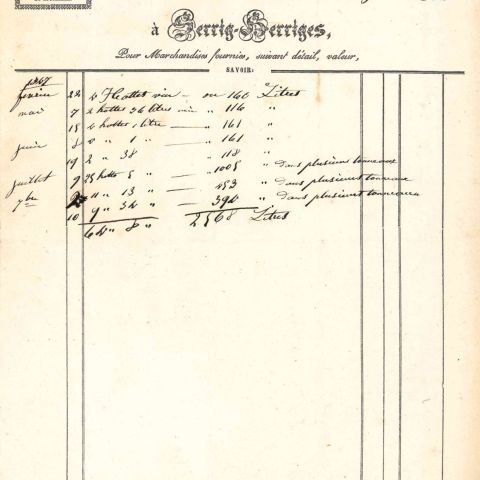 à Zerrig-Herriges,
Pour Marchandises fournies, suivant détail, valeur,
SAVOIR:
1847
février 22 4 Hottes vin — ou 160 Litres
mai 7 2 hottes 36 litres vin „ 116 „
15 4 hottes 1 litre — „ 161 „
juin 8 4 „ 1 „ — „ 161 „
19 2 „ 38 „ 118 „
juillet 9 25 hotte 5 „ — „ 1005 „ dans plusieurs tonneaux
7bre 2 11 „ 13 „ — „ 453 „ dans plusieurs tonneaux
10 9 „ 34 „ — „ 394 „ dans plusieurs tonneaux
64 „ 8 „ 2568 Litres